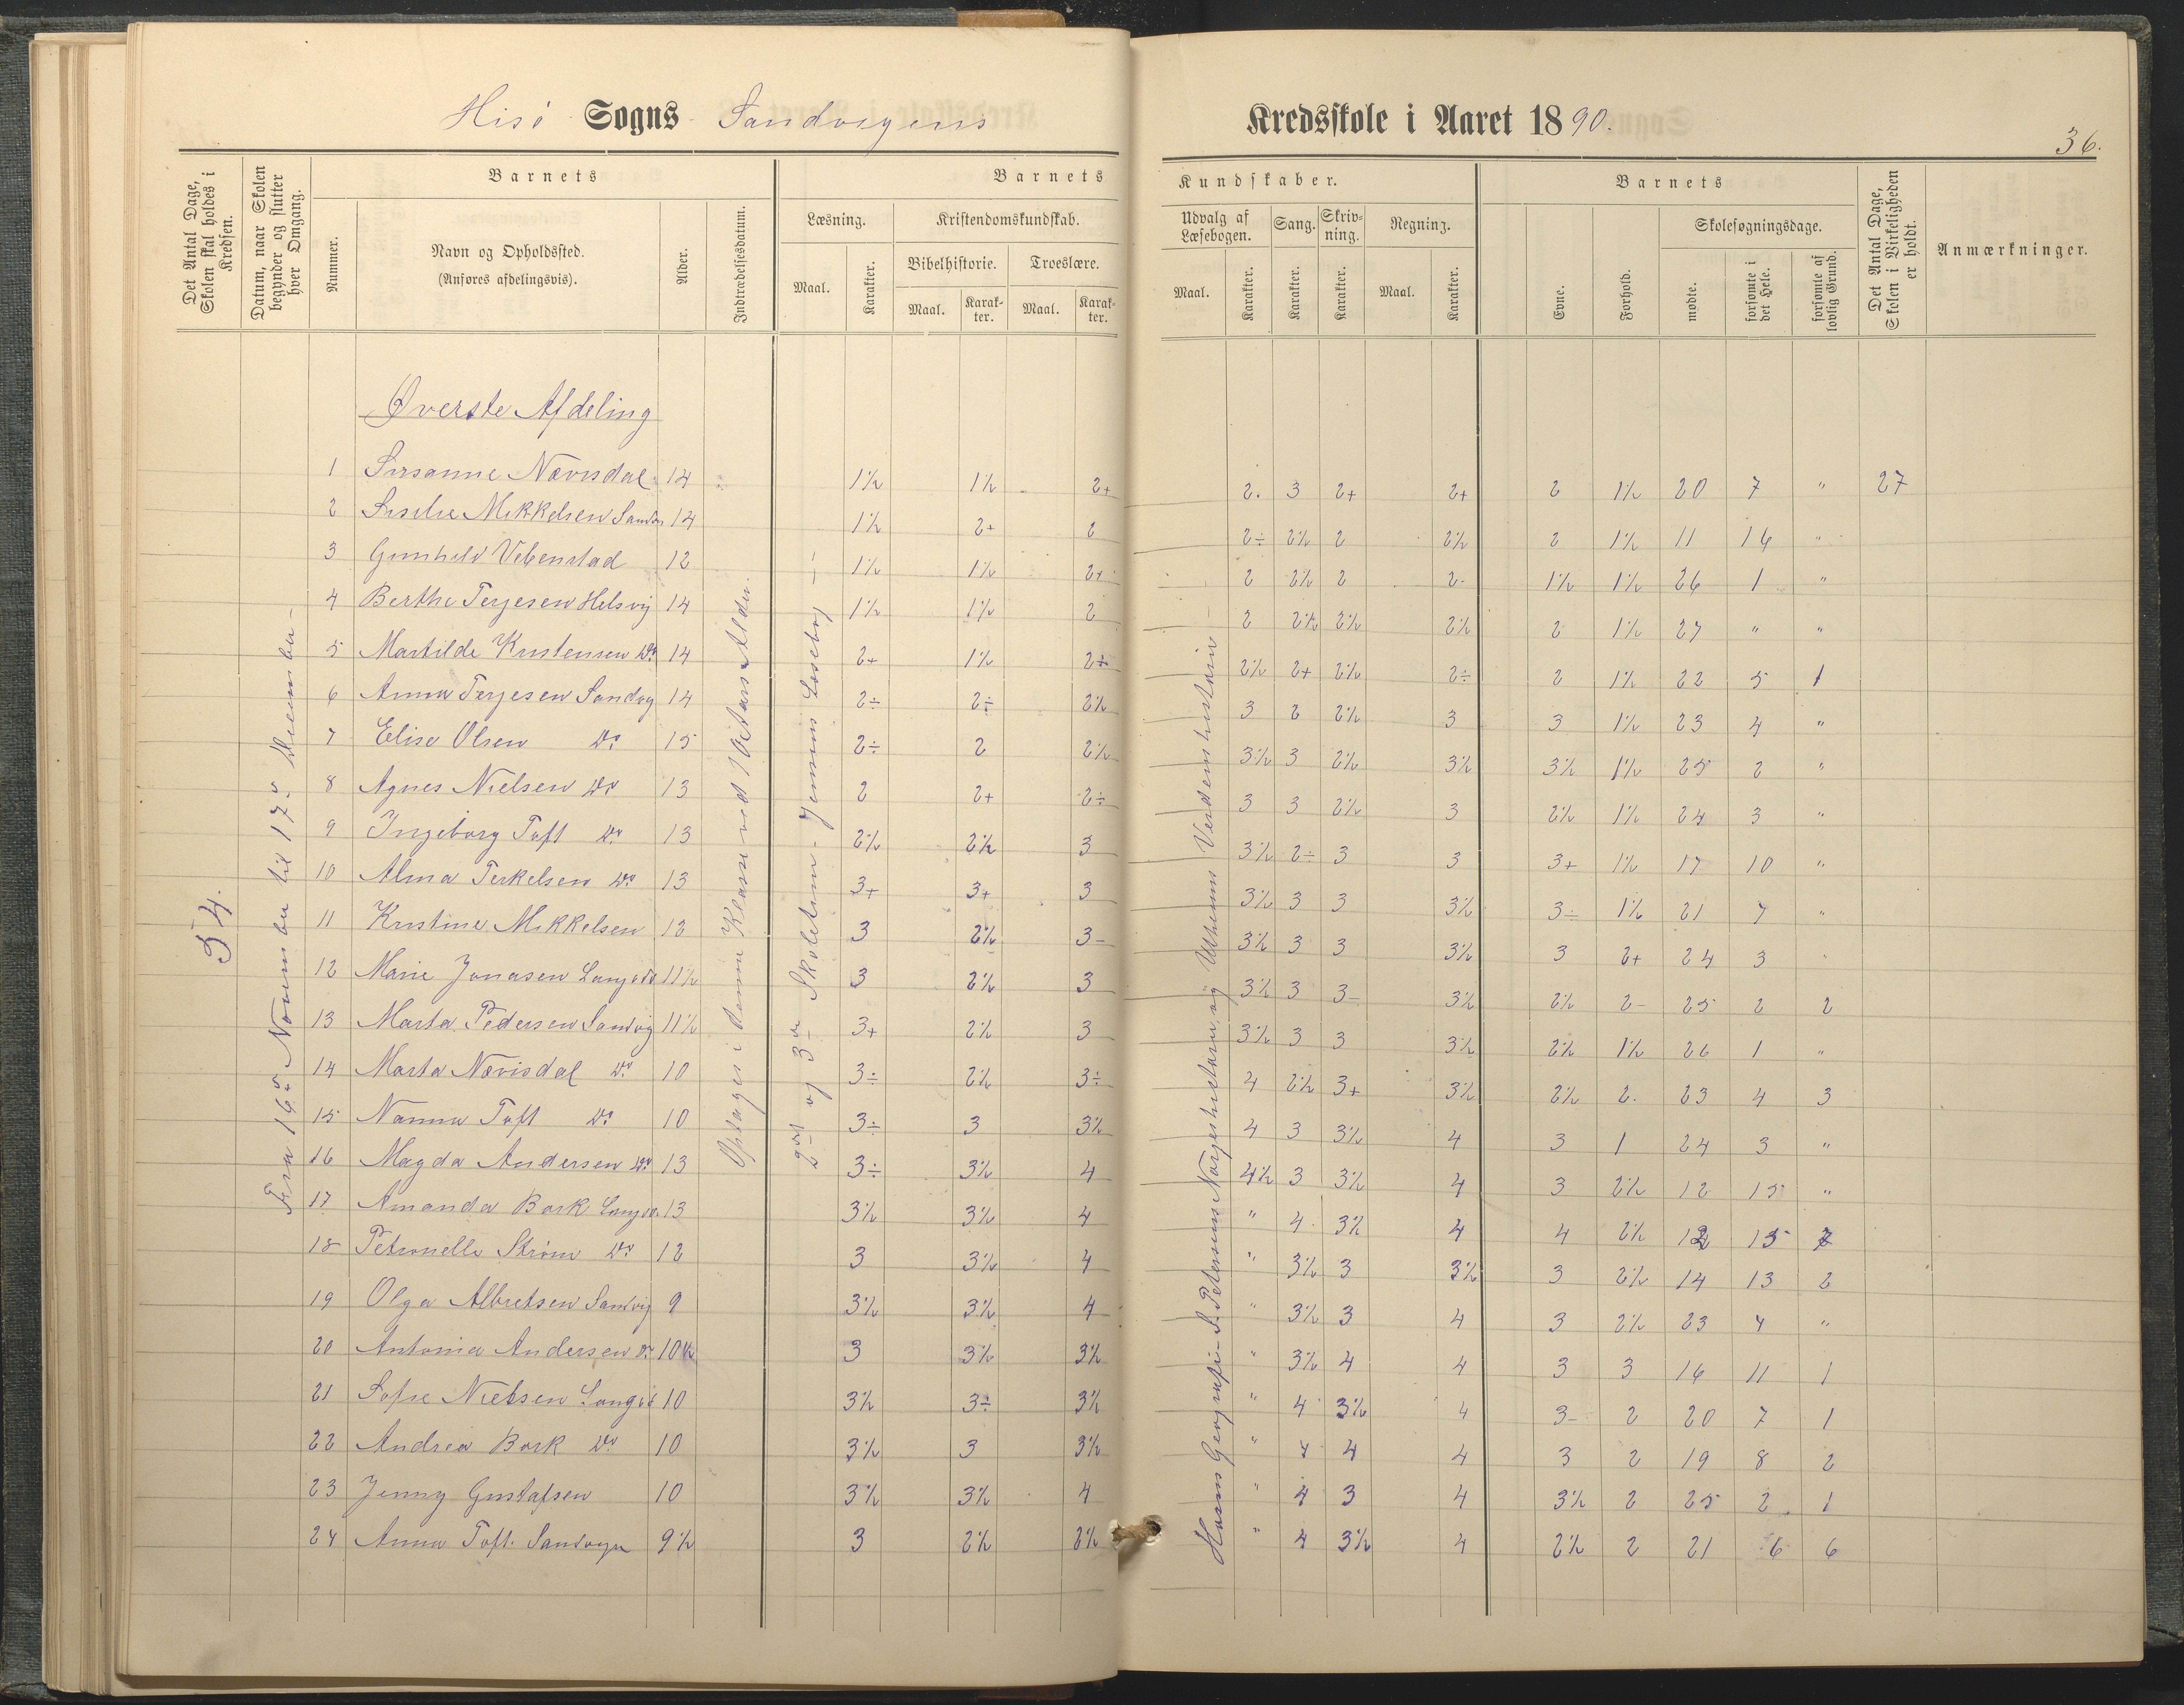 Hisø Sogns Sandvigens Kredsskole i Aaret 1890.
36.
Det Antal Dage, Skolen skal holdes i Kredsen.
Datum, naar Skolen begynder og slutter hver Omgang.
Barnets
Nummer.
Navn og Opholdssted.
(Anføres afdelingsvis).
Alder.
Indtrædelsesdatum.
Barnets Kundskaber.
Læsning.
Maal.
Karakter.
Kristendomskundskab.
Bibelhistorie.
Maal.
Karakter.
Troeslære.
Maal.
Karakter.
Udvalg af Læsebogen.
Maal.
Karakter.
Sang.
Karakter.
Skrivning.
Karakter.
Regning.
Maal.
Karakter.
Barnets
Evne.
Forhold.
Skolesøgningsdage.
mødte.
forsømte i det Hele.
forsømte af lovlig Grund.
Det Antal Dage, Skolen i Virkeligheden er holdt.
Anmærkninger.
54.
Fra 16de November til 17de December
Optages i denne Klasse ved 10 Aars Alder.
2den og 3die Skoletrin. Jensens Læsebog
Geografi. S. Petersens Norgeshistorie og Verdenshistorie
Øverste Afdeling
1 Susanne Nævisdal 14 1½ 1½ 2+ 2. 3 2+ 2+ 2 1½ 20 7 " 27
2 Mikkelsen 14 1½ 2+ 2 2÷ 2½ 2 2½ 2 1½ 11 16 "
3 Gunhild Vebenstad 12 1½ 1½ 2+ 2 2½ 2 2- 1½ 1½ 26 1 "
4 Berthe Terjesen Helsvig 14 1½ 1½ 2 2 2½ 2½ 2½ 2 1½ 27 " "
5 Martilde Kristensen Do 14 2+ 1½ 2÷ 2½ 2+ 2½ 2÷ 2 1½ 22 5 1
6 Anna Terjesen Sandvg 14 2÷ 2÷ 2½ 3 2 2½ 3 3 1½ 23 4 "
7 Elise Olsen Do 15 2÷ 2 2½ 3½ 3 2½ 3½ 3½ 1½ 25 2 "
8 Agnes Nielsen Do 13 2 2+ 2÷ 3 3 2½ 3 2½ 1½ 24 3 "
9 Ingeborg Toft Do 13 2½ 2½ 3 3½ 2÷ 3 3 3+ 1½ 17 10 "
10 Alma Terkelsen Do 13 3+ 3+ 3 3½ 3 3 3½ 3÷ 1½ 21 7 "
11 Kristine Mikkelsen 13 3 2½ 3- 3½ 3 3 3½ 3 2+ 24 3 "
12 Marie Jonasen 11½ 3 2½ 3 3½ 3 3- 3½ 2½ 2- 25 2 2
13 Marta Pedersen Sandvig 11½ 3+ 2½ 3 3½ 3 3 3½ 2½ 1½ 26 1 "
14 Marta Nævisdal Do 10 3÷ 2½ 3÷ 4 2½ 3+ 3½ 2½ 2. 23 4 3
15 Nanna Toft Do 10 3÷ 3 3½ 4 3 3½ 4 3 1 24 3 "
16 Magda Andersen Do 13 3÷ 3½ 4 4½ 3 3½ 4 3 2½ 12 15 "
17 Amanda Bork 13 3½ 3½ 4 " 4 3½ 4 4 2½ 12 15
18 Petronelle Strøm Do 12 3 3½ 4 " 3½ 3 3½ 3 2½ 14 13 2
19 Olga Albretsen Sandvig 9 3½ 3½ 4 " 3½ 3 4 3 2½ 23 4 "
20 Antonia Andersen Do 10½ 3 3½ 3½ " 3½ 4 4 3 3 16 11 1
21 Sofie Nielsen 10 3½ 3÷ 3½ " 4 3½ 4 3- 2 20 7 1
22 Andrea Bork Do 10 3½ 3 3½ " 4 4 4 3 2 19 8 2
23 Jenny Gustafsen 10 3½ 3½ 4 " 4 3 4 3½ 2 25 2 1
24 Anna Toft. Sandvgn 9½ 3 2½ 2½ " 4 3½ 4 2½ 2 21 6 6